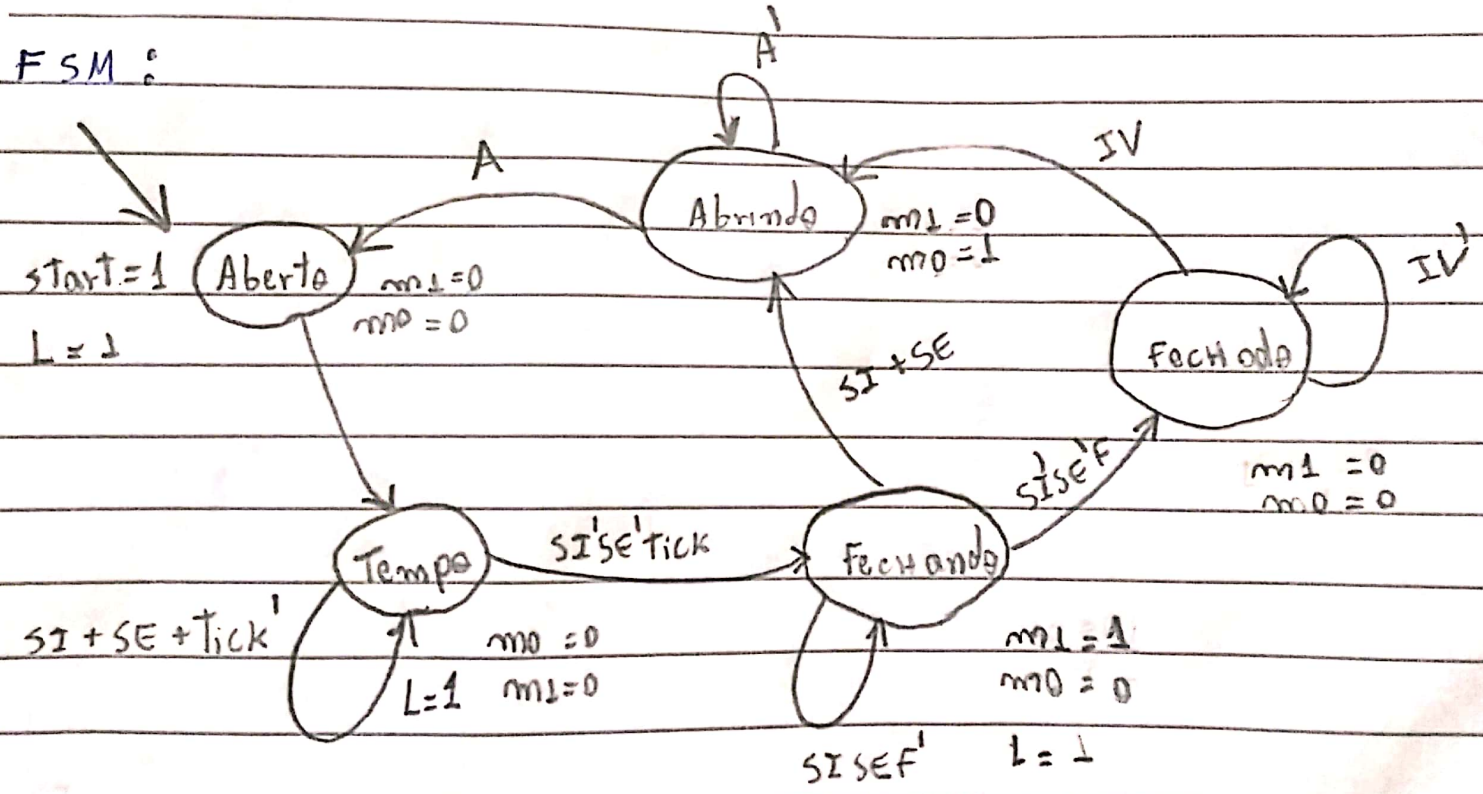 FSM:
A'
A
IV
Abrindo
m1=0
m0=1
start=1
Aberto
m1=0
m0=0
L=1
IV'
FecHado
m1=0
m0=0
SI+SE
SI'SE'F
Tempo
SI'SE'TicK
FecHando
SI+SE+Tick'
m0=0
L=1 m1=0
m1=1
m0=0
SISEF' L=1